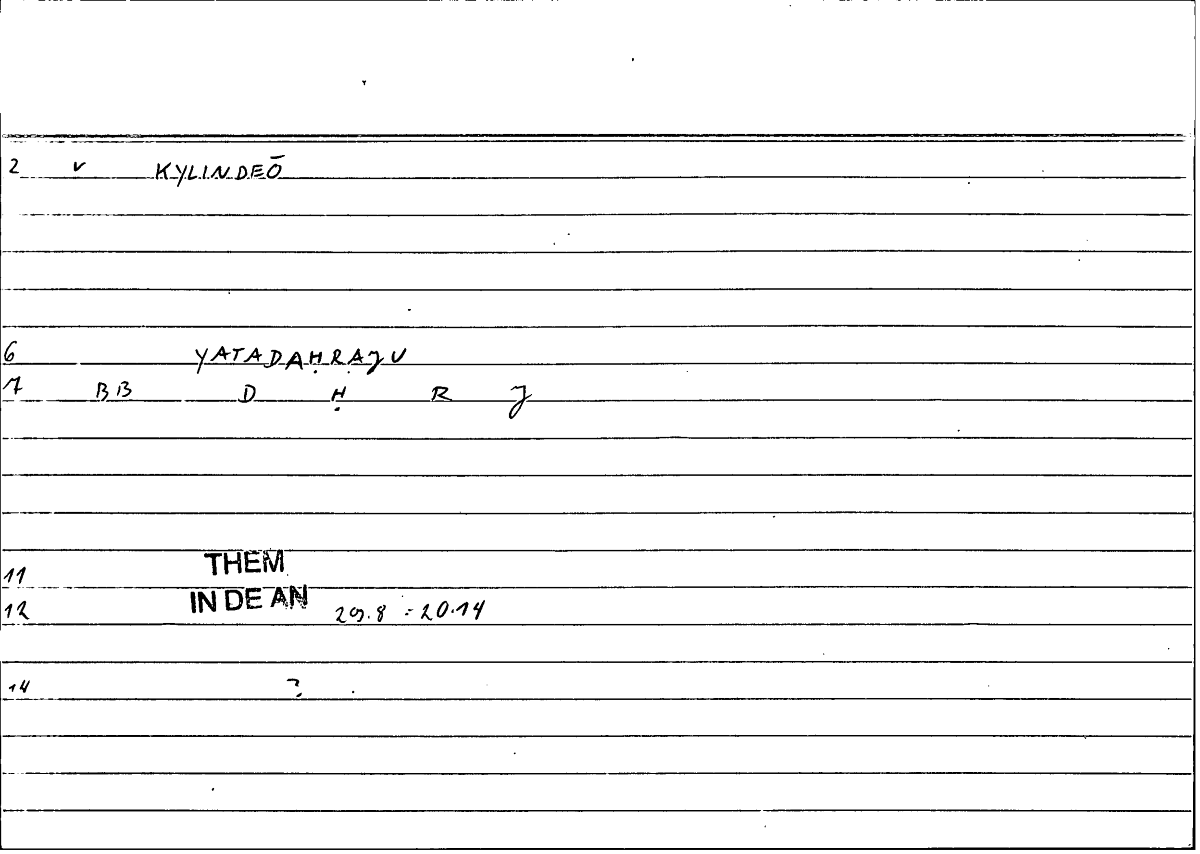 2 v KYLINDEŌ
6 YATADAḤRAJU
7 BB D Ḥ R J
11 THEM
12 IN DE AN 29.8 = 20.14
14 ?